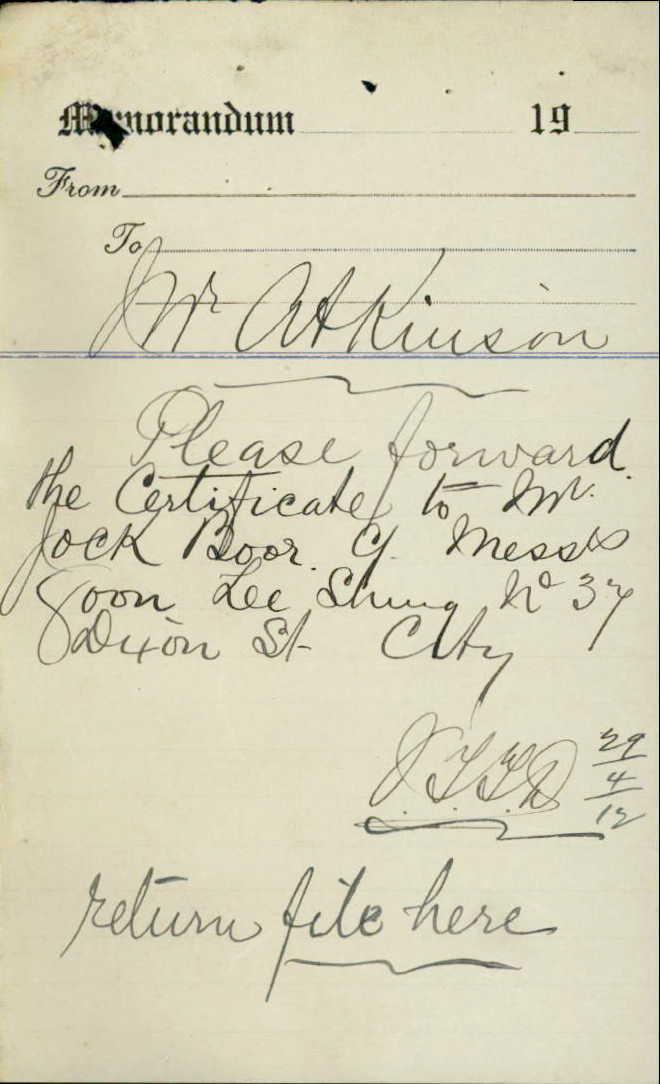 Memorandum 19
From
To
Mr Atkinson
Please forward
the Certificate to Mr.
Jock Boor. C/. Messrs
Goon Lee Shung No 37
Dixon St City
J.T.T.D 29/4/12
return file here